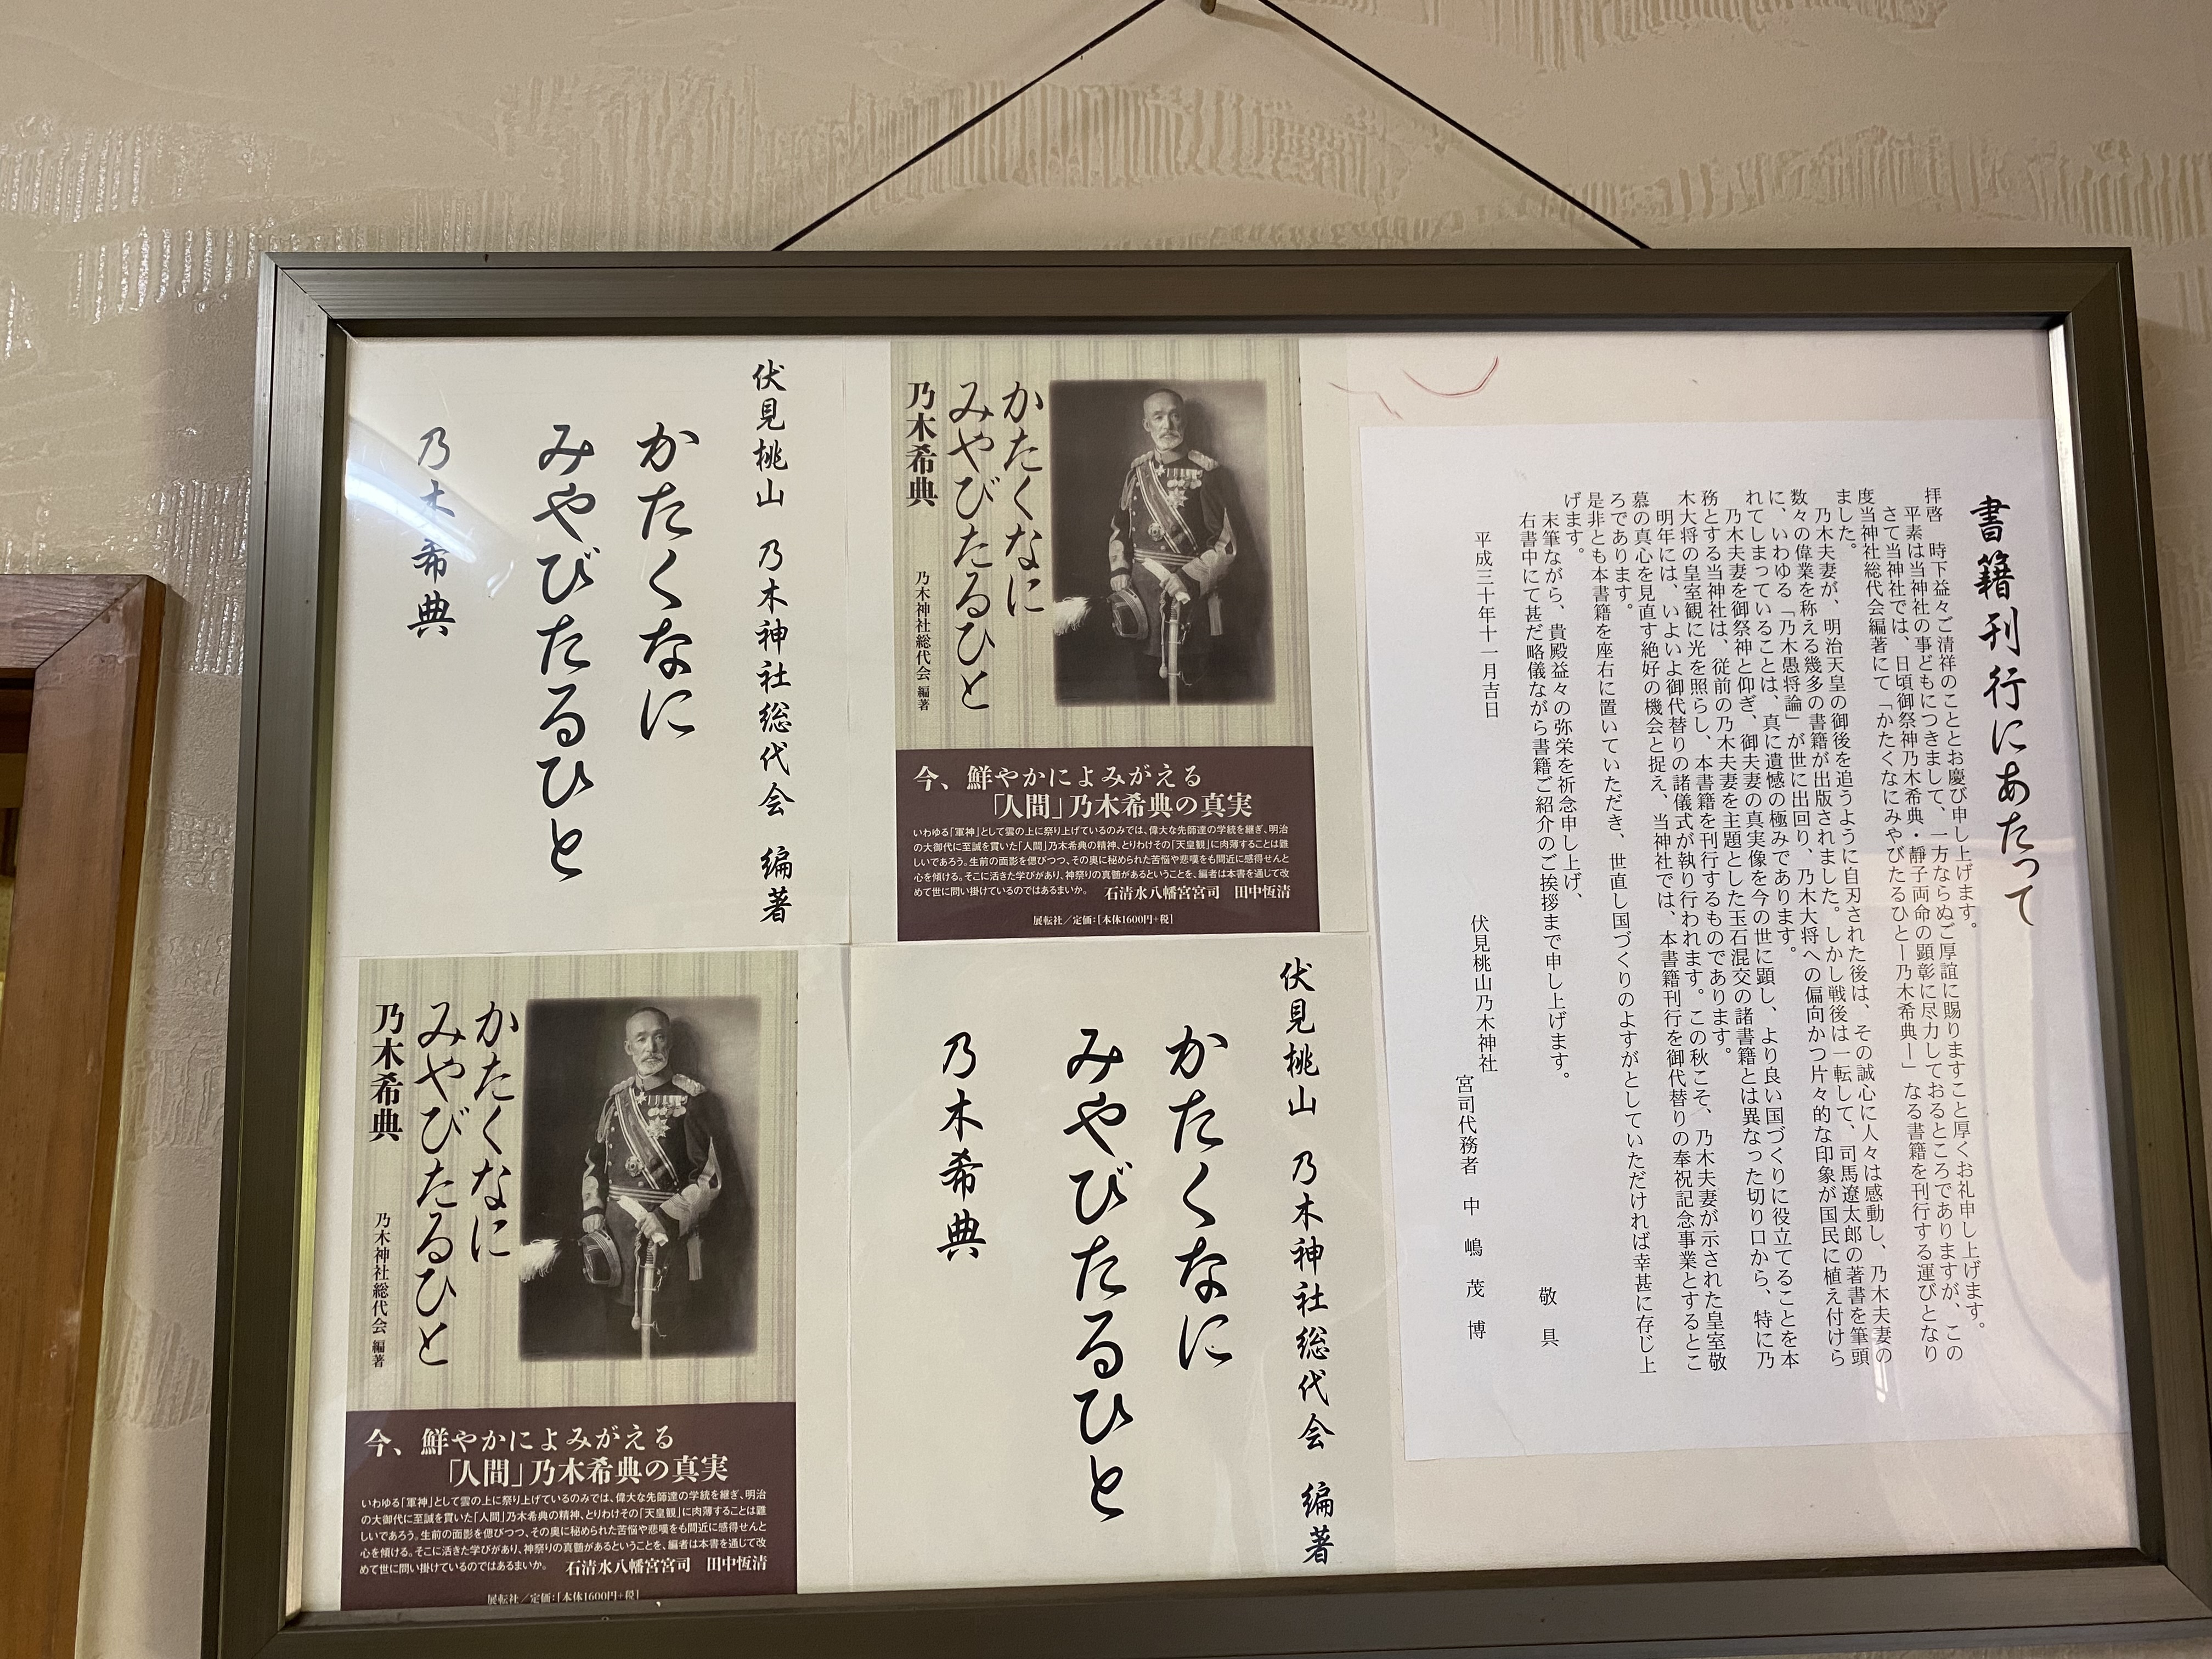 書籍刊行にあたって
拝啓　時下益々ご清祥のこととお慶び申し上げます。
平素は当神社の事どもにつきまして、一方ならぬご厚誼に賜りますこと厚くお礼申し上げます。
さて当神社では、日頃御祭神乃木希典・靜子両命の顕彰に尽力しておるところでありますが、この
度当神社総代会編著にて「かたくなにみやびたるひと―乃木希典―」なる書籍を刊行する運びとなり
ました。
乃木夫妻が、明治天皇の御後を追うように自刃された後は、その誠心に人々は感動し、乃木夫妻の
数々の偉業を称える幾多の書籍が出版されました。しかし戦後は一転して、司馬遼太郎の著書を筆頭
に、いわゆる「乃木愚将論」が世に出回り、乃木大将への偏向かつ片々的な印象が国民に植え付けら
れてしまっていることは、真に遺憾の極みであります。
乃木夫妻を御祭神と仰ぎ、御夫妻の真実像を今の世に顕し、より良い国づくりに役立てることを本
務とする当神社は、従前の乃木夫妻を主題とした玉石混交の諸書籍とは異なった切り口から、特に乃
木大将の皇室観に光を照らし、本書籍を刊行するものであります。
明年には、いよいよ御代替りの諸儀式が執り行われます。この秋こそ、乃木夫妻が示された皇室敬
慕の真心を見直す絶好の機会と捉え、当神社では、本書籍刊行を御代替りの奉祝記念事業とするとこ
ろであります。
是非とも本書籍を座右に置いていただき、世直し国づくりのよすがとしていただければ幸甚に存じ上
げます。
末筆ながら、貴殿益々の弥栄を祈念申し上げ、
右書中にて甚だ略儀ながら書籍ご紹介のご挨拶まで申し上げます。
敬具
平成三十年十一月吉日
伏見桃山乃木神社
宮司代務者　中嶋茂博
かたくなに
みやびたるひと
乃木希典
乃木神社総代会 編著
今、鮮やかによみがえる
「人間」乃木希典の真実
いわゆる「軍神」として雲の上に祭り上げているのみでは、偉大な先師達の学統を継ぎ、明治
の大御代に至誠を貫いた「人間」乃木希典の精神、とりわけその「天皇観」に肉薄することは難
しいであろう。生前の面影を偲びつつ、その奥に秘められた苦悩や悲嘆をも間近に感得せんと
心を傾ける。そこに活きた学びがあり、神祭りの真髄があるということを、編者は本書を通じて改
めて世に問い掛けているのではあるまいか。　石清水八幡宮宮司　田中恆清
展転社／定価：[本体1600円+税]
伏見桃山　乃木神社総代会　編著
かたくなに
みやびたるひと
乃木希典
伏見桃山　乃木神社総代会　編著
かたくなに
みやびたるひと
乃木希典
かたくなに
みやびたるひと
乃木希典
乃木神社総代会 編著
今、鮮やかによみがえる
「人間」乃木希典の真実
いわゆる「軍神」として雲の上に祭り上げているのみでは、偉大な先師達の学統を継ぎ、明治
の大御代に至誠を貫いた「人間」乃木希典の精神、とりわけその「天皇観」に肉薄することは難
しいであろう。生前の面影を偲びつつ、その奥に秘められた苦悩や悲嘆をも間近に感得せんと
心を傾ける。そこに活きた学びがあり、神祭りの真髄があるということを、編者は本書を通じて改
めて世に問い掛けているのではあるまいか。　石清水八幡宮宮司　田中恆清
展転社／定価：[本体1600円+税]